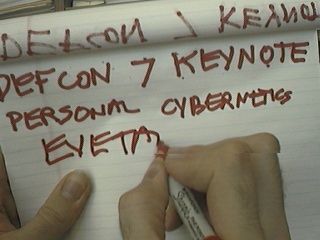 DEFCON 7 KEYNO
DEFCON 7 KEYNOTE
PERSONAL CYBERNETICS
EYETA